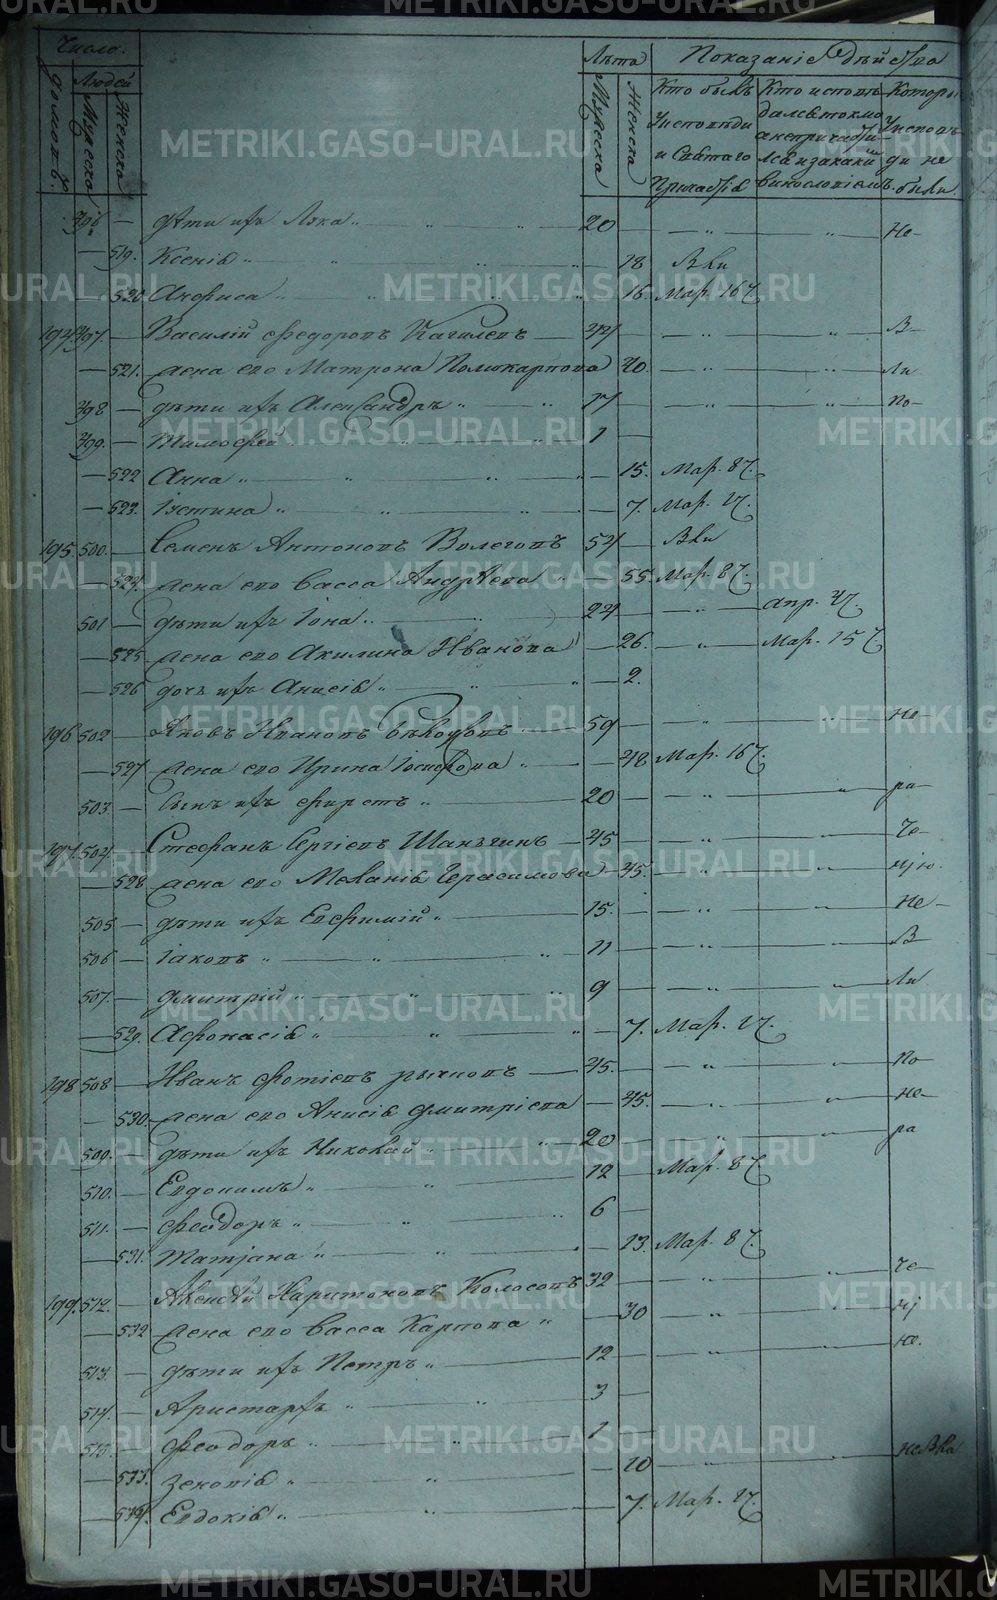 Число.
Лѣта
Показаніе дѣйства
домовъ.
Людей
Мужеска
Женска
Мужеска
Женска
Кто былъ
Уисповѣди
и Святаго
Причастія
Кто исповѣ
дался токмо
а непричасти
лся и за каки
ки
винословіемъ.
Которы
Уисповѣ
ди не
были.
496 — дѣти ихъ Лука 20 — не-
— 519. Ксенія — 18 Вли
— 520 Анфиса — 16. Мар. 16 Ч.
194 497 — Василій Федоровъ Кагилевъ 44 — в-
— 521. жена его Матрона Поликарпова 40. ли
498 — дѣти ихъ Александръ 17 по-
499. — Тимофей 1 —
— 522 Анна — 15. Мар. 8 Ч.
— 523. Іустина — 7. Мар. 1 Ч.
195. 500. — Семенъ Антоновъ Волеговъ 54 — Вли
— 524. жена его Васса Андрѣева — 55 Мар. 8 Ч.
501 — дѣти ихъ Іона 24 — Апр. 4 Ч.
— 525 жена его Акилина Иванова — 26. Мар. 15 Ч.
— 526 дочь ихъ Анисія — 2.
196 502 — Яковъ Ивановъ 59 — не-
— 527 жена его Ирина Іосифова — 48 Мар. 16 Ч.
503 — сынъ ихъ Фирстъ 20 — ра-
197. 504. — Стефанъ Сергіевъ Шаньгинъ 45 че-
— 528 жена его Меланія Герасимова — 45. нію
505 — дѣти ихъ Евфимій 15. — не-
506 — Іаковъ 11 — в
507. — Дмитрій 9 — ли
— 529. Афонасія — 7. Мар. 1 Ч.
198 508 — Иванъ Фотіевъ 45. — по-
— 530. жена его Анисія Дмитріева — 45. не-
509. — дѣти ихъ Николай 20 — ра
510. — Евдокимъ 12 — Мар. 8 Ч.
511. — Феодоръ 6 —
— 531. Татіана — 13. Мар. 8 Ч.
199. 512. — Алексѣй Харитоновъ Колосовъ 32 — че-
— 532 жена его Васса Карпова — 30 нj
513. — дѣти ихъ Петръ 12 — не.
514. — Аристархъ 3 —
515. — Феодоръ 1
— 533. Зеновія — 10 не Вли
— 534. Евдокія — 7. Мар. 1 Ч.
METRIKI.GASO-URAL.RU